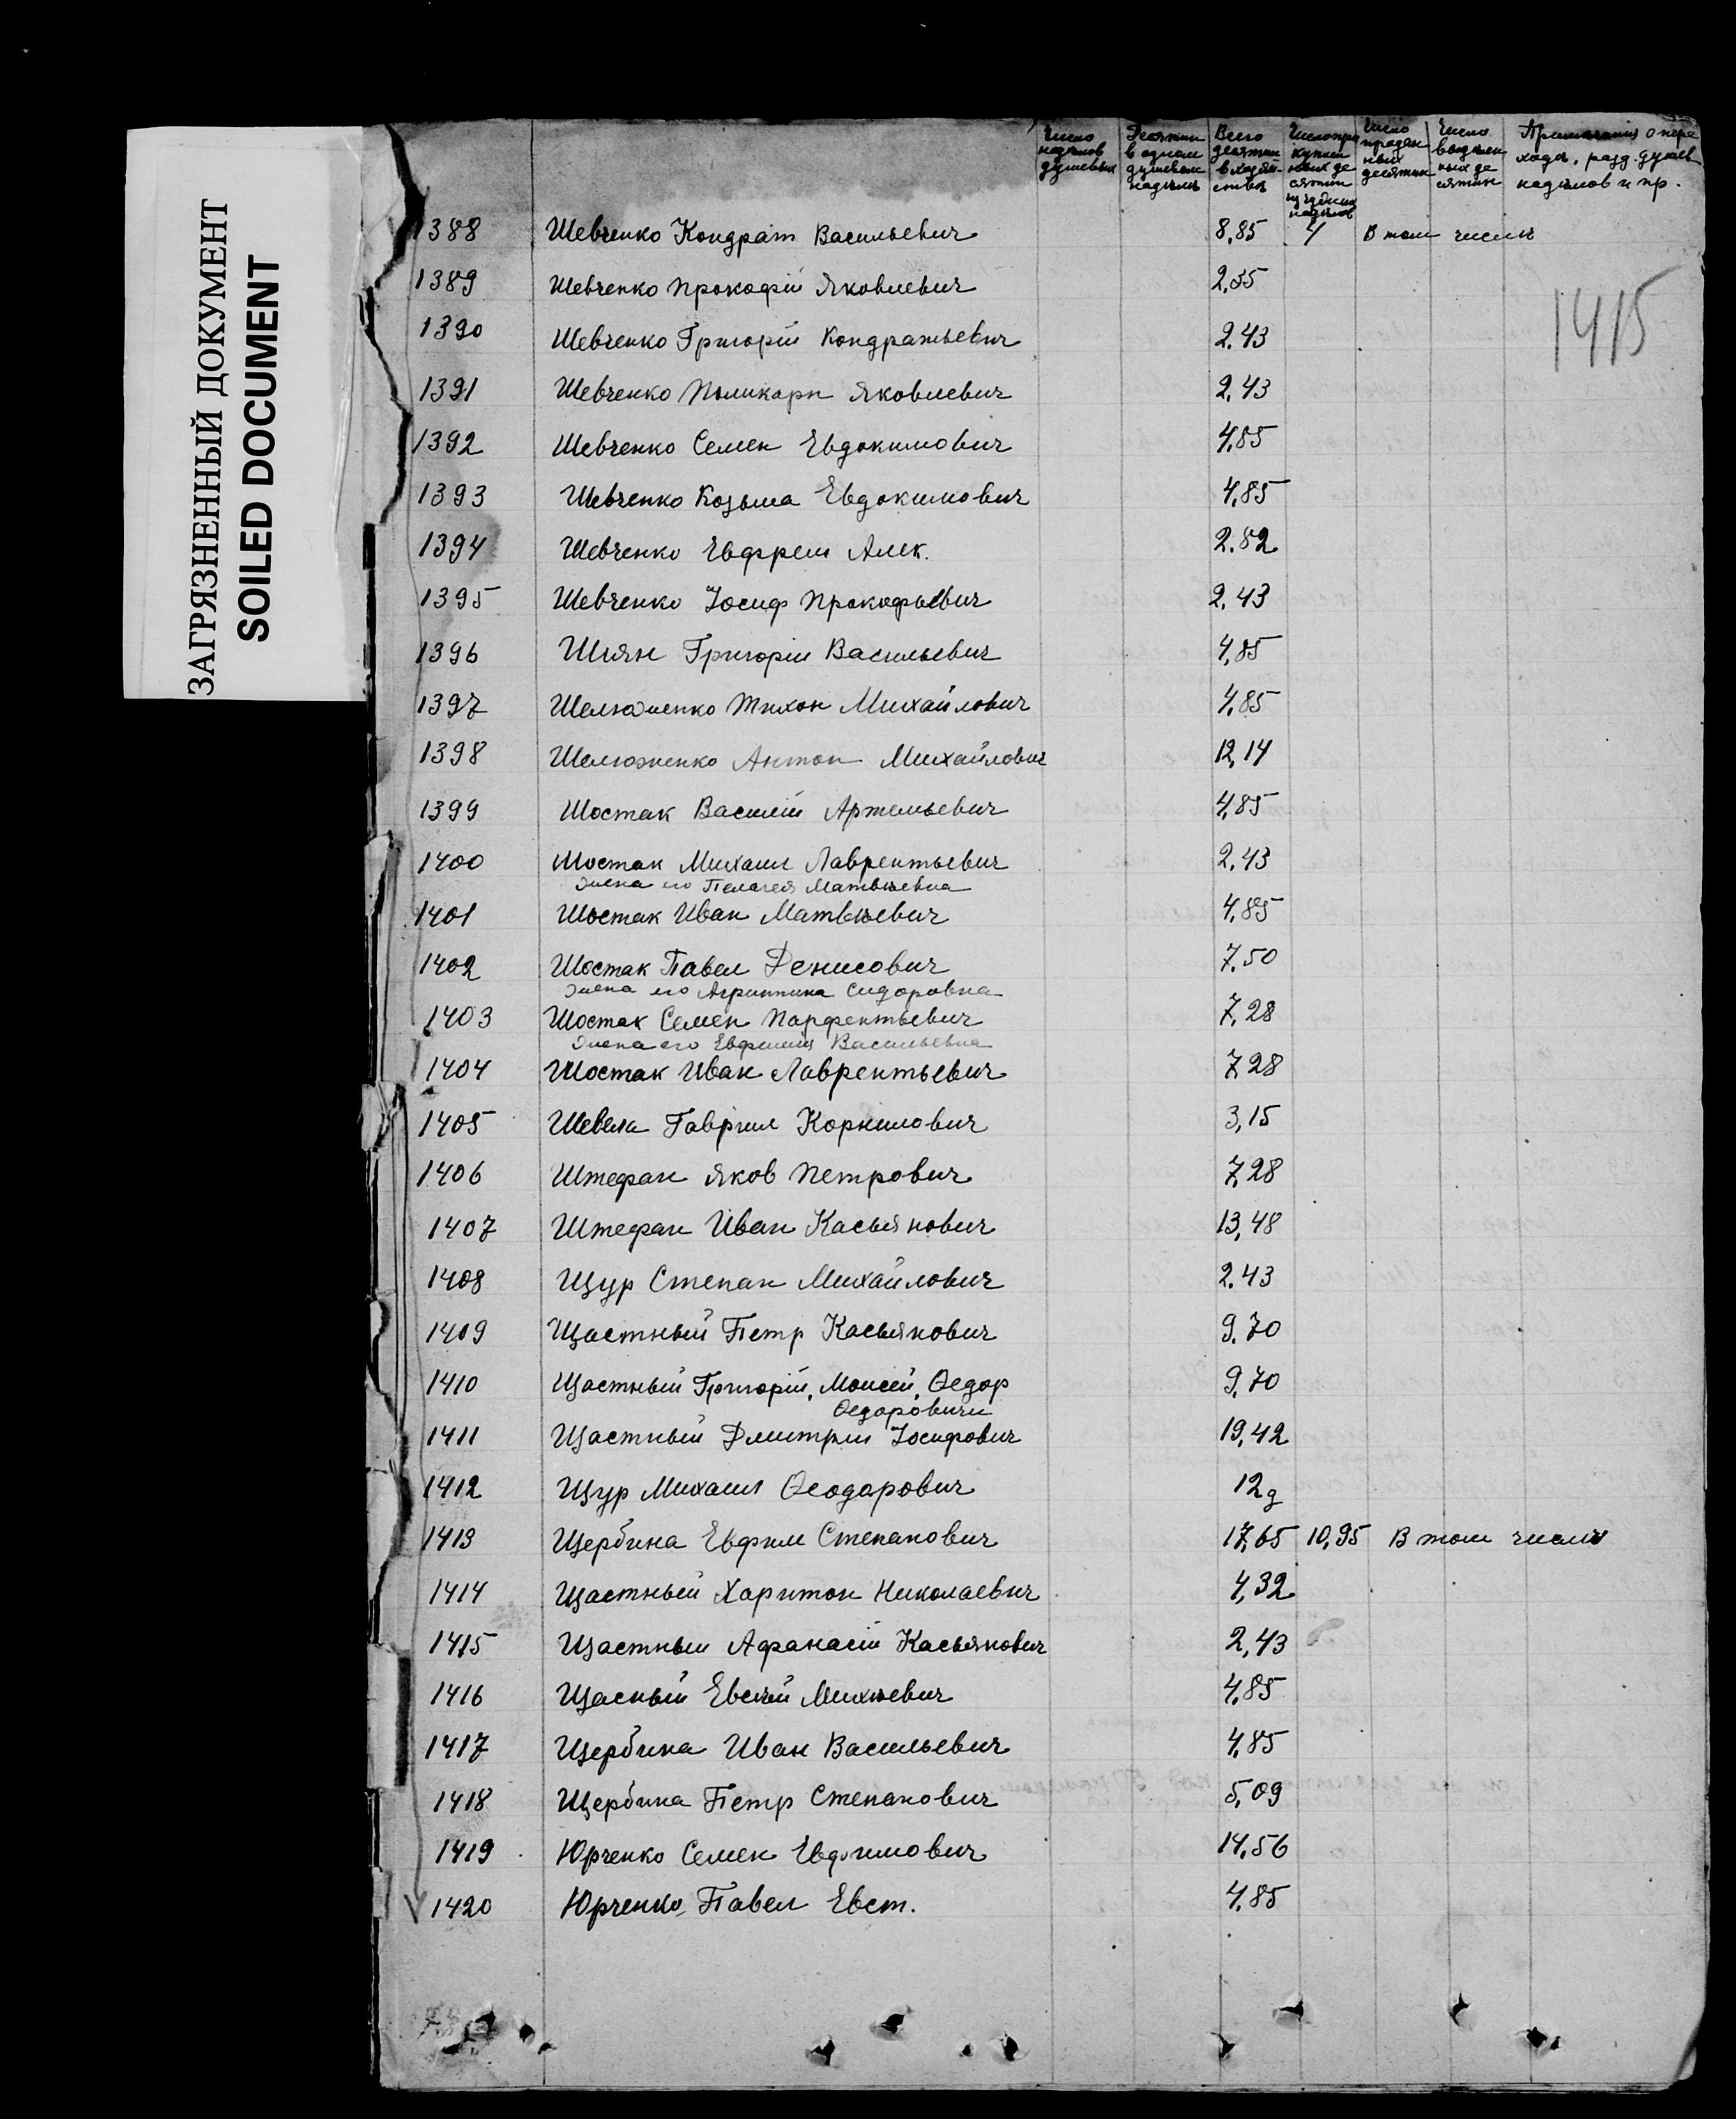 ЗАГРЯЗНЕННЫЙ ДОКУМЕНТ
SOILED DOCUMENT
Число наделов душевых
Десятин в одном душевом наделѣ
Всего десятин в хозяйствѣ
Число прокупленных десятин наделов
Число проданных десятин
Число выделенных десятин
Примечания о переходѣ, разд. душев. наделов и пр.
1415
1388 Шевченко Кондрат Васильевич 8,85 4 В том числѣ
1389 Шевченко Прокофій Яковлевич 2,35
1390 Шевченко Григорій Кондратьевич 2,43
1391 Шевченко Поликарп Яковлевич 2,43
1392 Шевченко Семен Евдокимович 4,85
1393 Шевченко Козьма Евдокимович 4,85
1394 Шевченко Евфрем Алек. 2.82
1395 Шевченко Іосиф Прокофьевич 2,43
1396 Шиян Григорій Васильевич 4,85
1397 Шелюженко Тихон Михайлович 4,85
1398 Шелюженко Антон Михайлович 12,14
1399 Шостак Василій Артемьевич 4,85
1400 Шостак Михаил Лаврентьевич 2,43
жена его Пелагея Матвѣевна
1401 Шостак Иван Матвѣевич 4,85
1402 Шостак Павел Денисович 7,50
жена его Агриппина Сидоровна
1403 Шостак Семен Парфентьевич 7,28
жена его Евфимия Васильевна
1404 Шостак Иван Лаврентьевич 7,28
1405 Шевела Гавриил Корнилович 3,15
1406 Штефан Яков Петрович 7,28
1407 Штефан Иван Касьянович 13,48
1408 Щур Степан Михайлович 2.43
1409 Щастный Петр Касьянович 9.70
1410 Щастный Григорій, Моисей, Ѳедор 9,70
Ѳедоровичи
1411 Щастный Дмитрій Іосифович 19,42
1412 Щур Михаил Ѳеодорович 12 д
1413 Щербина Евфим Степанович 17,65 10,95 В том числѣ
1414 Щастный Харитон Николаевич 4,32
1415 Щастный Афанасій Касьянович 2,43
1416 Щасный Евсей 4,85
1417 Щербина Иван Васильевич 4,85
1418 Щербина Петр Степанович 5,09
1419 Юрченко Семен 14,56
1420 Юрченко Павел Евст. 4,85